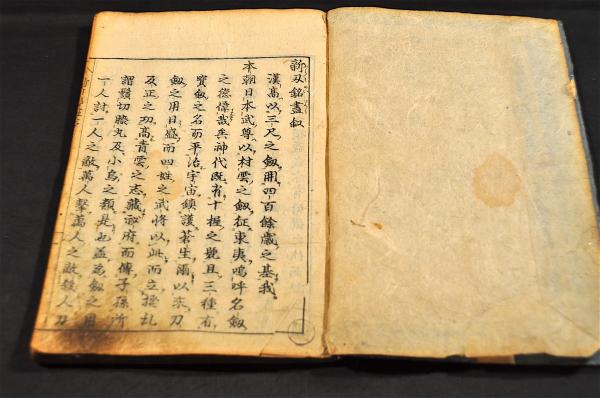 新刃銘盡叙
漢高以三尺之劔開四百餘歳之基我
本朝日本武尊以村雲之劔征東夷嗚呼名劔
之徳偉哉矣神代既有十握之號且三種有
寳劔之名而平治宇宙鎮護蒼生爾以来刀
劔之用日盛而四姓之武将以此而立撥乱
及正之功高青雲之志蔵秘府而傳子孫所
謂鬚切膝丸及小烏之類是也蓋劔之用
一人討一人之敵萬人撃萬人之敵殺人刀